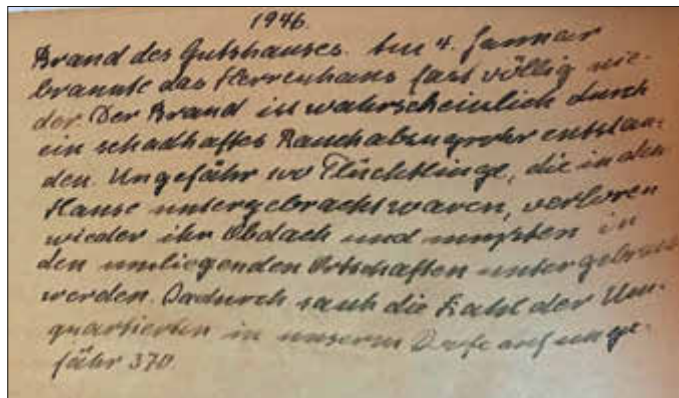 1946.
Brand des Gutshauses. Am 4. Januar
brannte das Herrenhaus fast völlig nie-
der. Der Brand ist wahrscheinlich durch
ein schadhaftes Rauchabzugrohr entstan-
den. Ungefähr Flüchtlinge, die in dem
Hause untergebracht waren, verloren
wieder ihr Obdach und mußten in
den umliegenden Ortschaften untergebracht
werden. Dadurch sank die Zahl der Um-
quartierten in unserm Dorfe auf unge-
fähr 370.